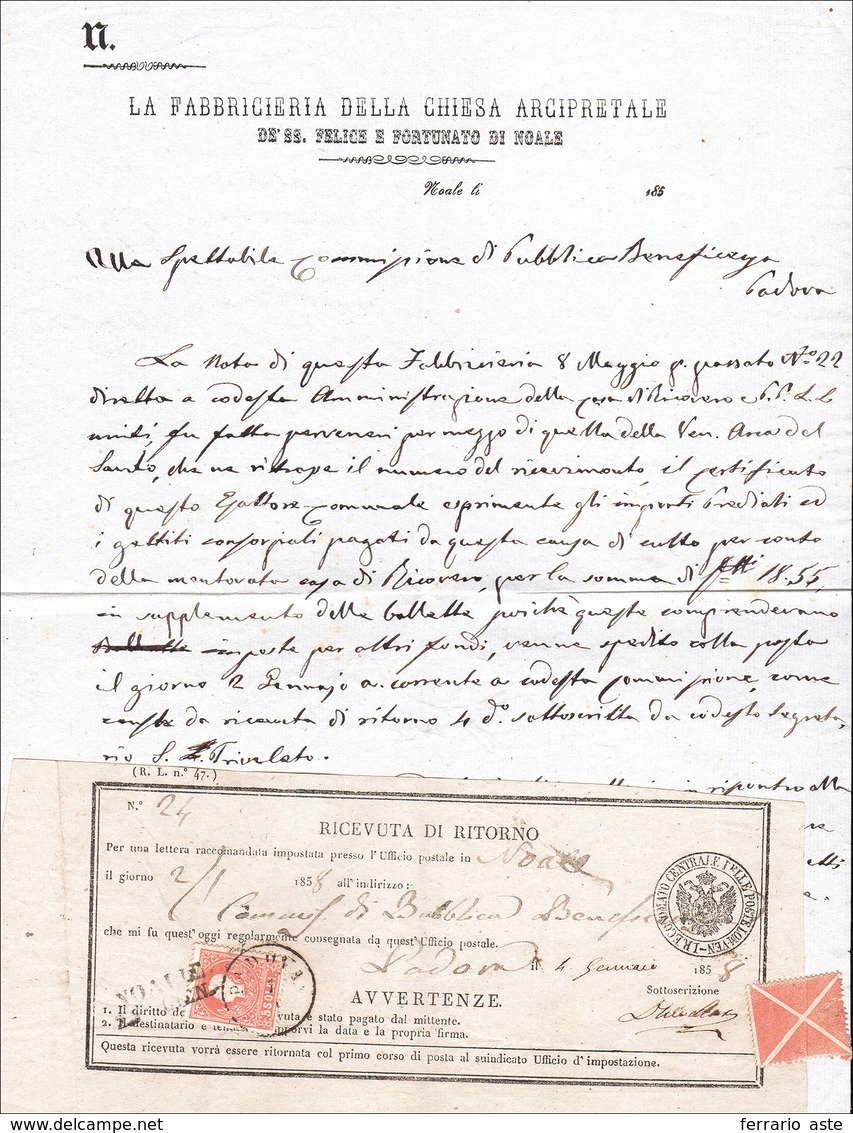 N.
LA FABBRICIERIA DELLA CHIESA ARCIPRETALE
DE' SS. FELICE E FORTUNATO DI NOALE
Noale li 185
Alla Spettabile Commissione di Pubblica Beneficenza
Padova
La Nota di questa Fabbricieria 8 Maggio p. passato N.º 22
diretta a codesta Amministrazione della casa di Ricovero e
uniti, fu fatta pervenire per mezzo di quella della Ven. Arca del
Santo, che ne ritrasse il numero del ricevimento, il certificato
di questo Esattore comunale esprimente gli importi Prediali ed
i gettiti consorziali pagati da questa causa di culto per conto
della mentovata casa di Ricovero, per la somma di 18.55,
in supplemento delle bollette poichè queste comprendevano
imposte per altri fondi, venne spedito colla posta
il giorno 2 Gennajo a. corrente a codesta Commissione, come
consta da ricevuta di ritorno 4 dº. sottoscritta da codesto Segreta,
rio S. Trivelato.
(R. L. n.º 47.)
in riscontro alla
N.º 24
RICEVUTA DI RITORNO
Per una lettera raccomandata impostata presso l'Ufficio postale in Noale
il giorno 2/1 1858 all'indirizzo:
Commiss. di Pubblica Benefic
che mi fu quest'oggi regolarmente consegnata da quest'Ufficio postale.
Padova il 4 Gennaio 1858
I. R. ECONOMATO CENTRALE DELLE POSTE LOM. VEN.
AVVERTENZE.
Sottoscrizione
NOALE
GEN.
PADOVA
5 SOLDI
1. Il diritto de vuta è stato pagato dal mittente.
2. Il destinatario è tenu apporvi la data e la propria firma.
Questa ricevuta vorrà essere ritornata col primo corso di posta al suindicato Ufficio d'impostazione.
ferrario aste